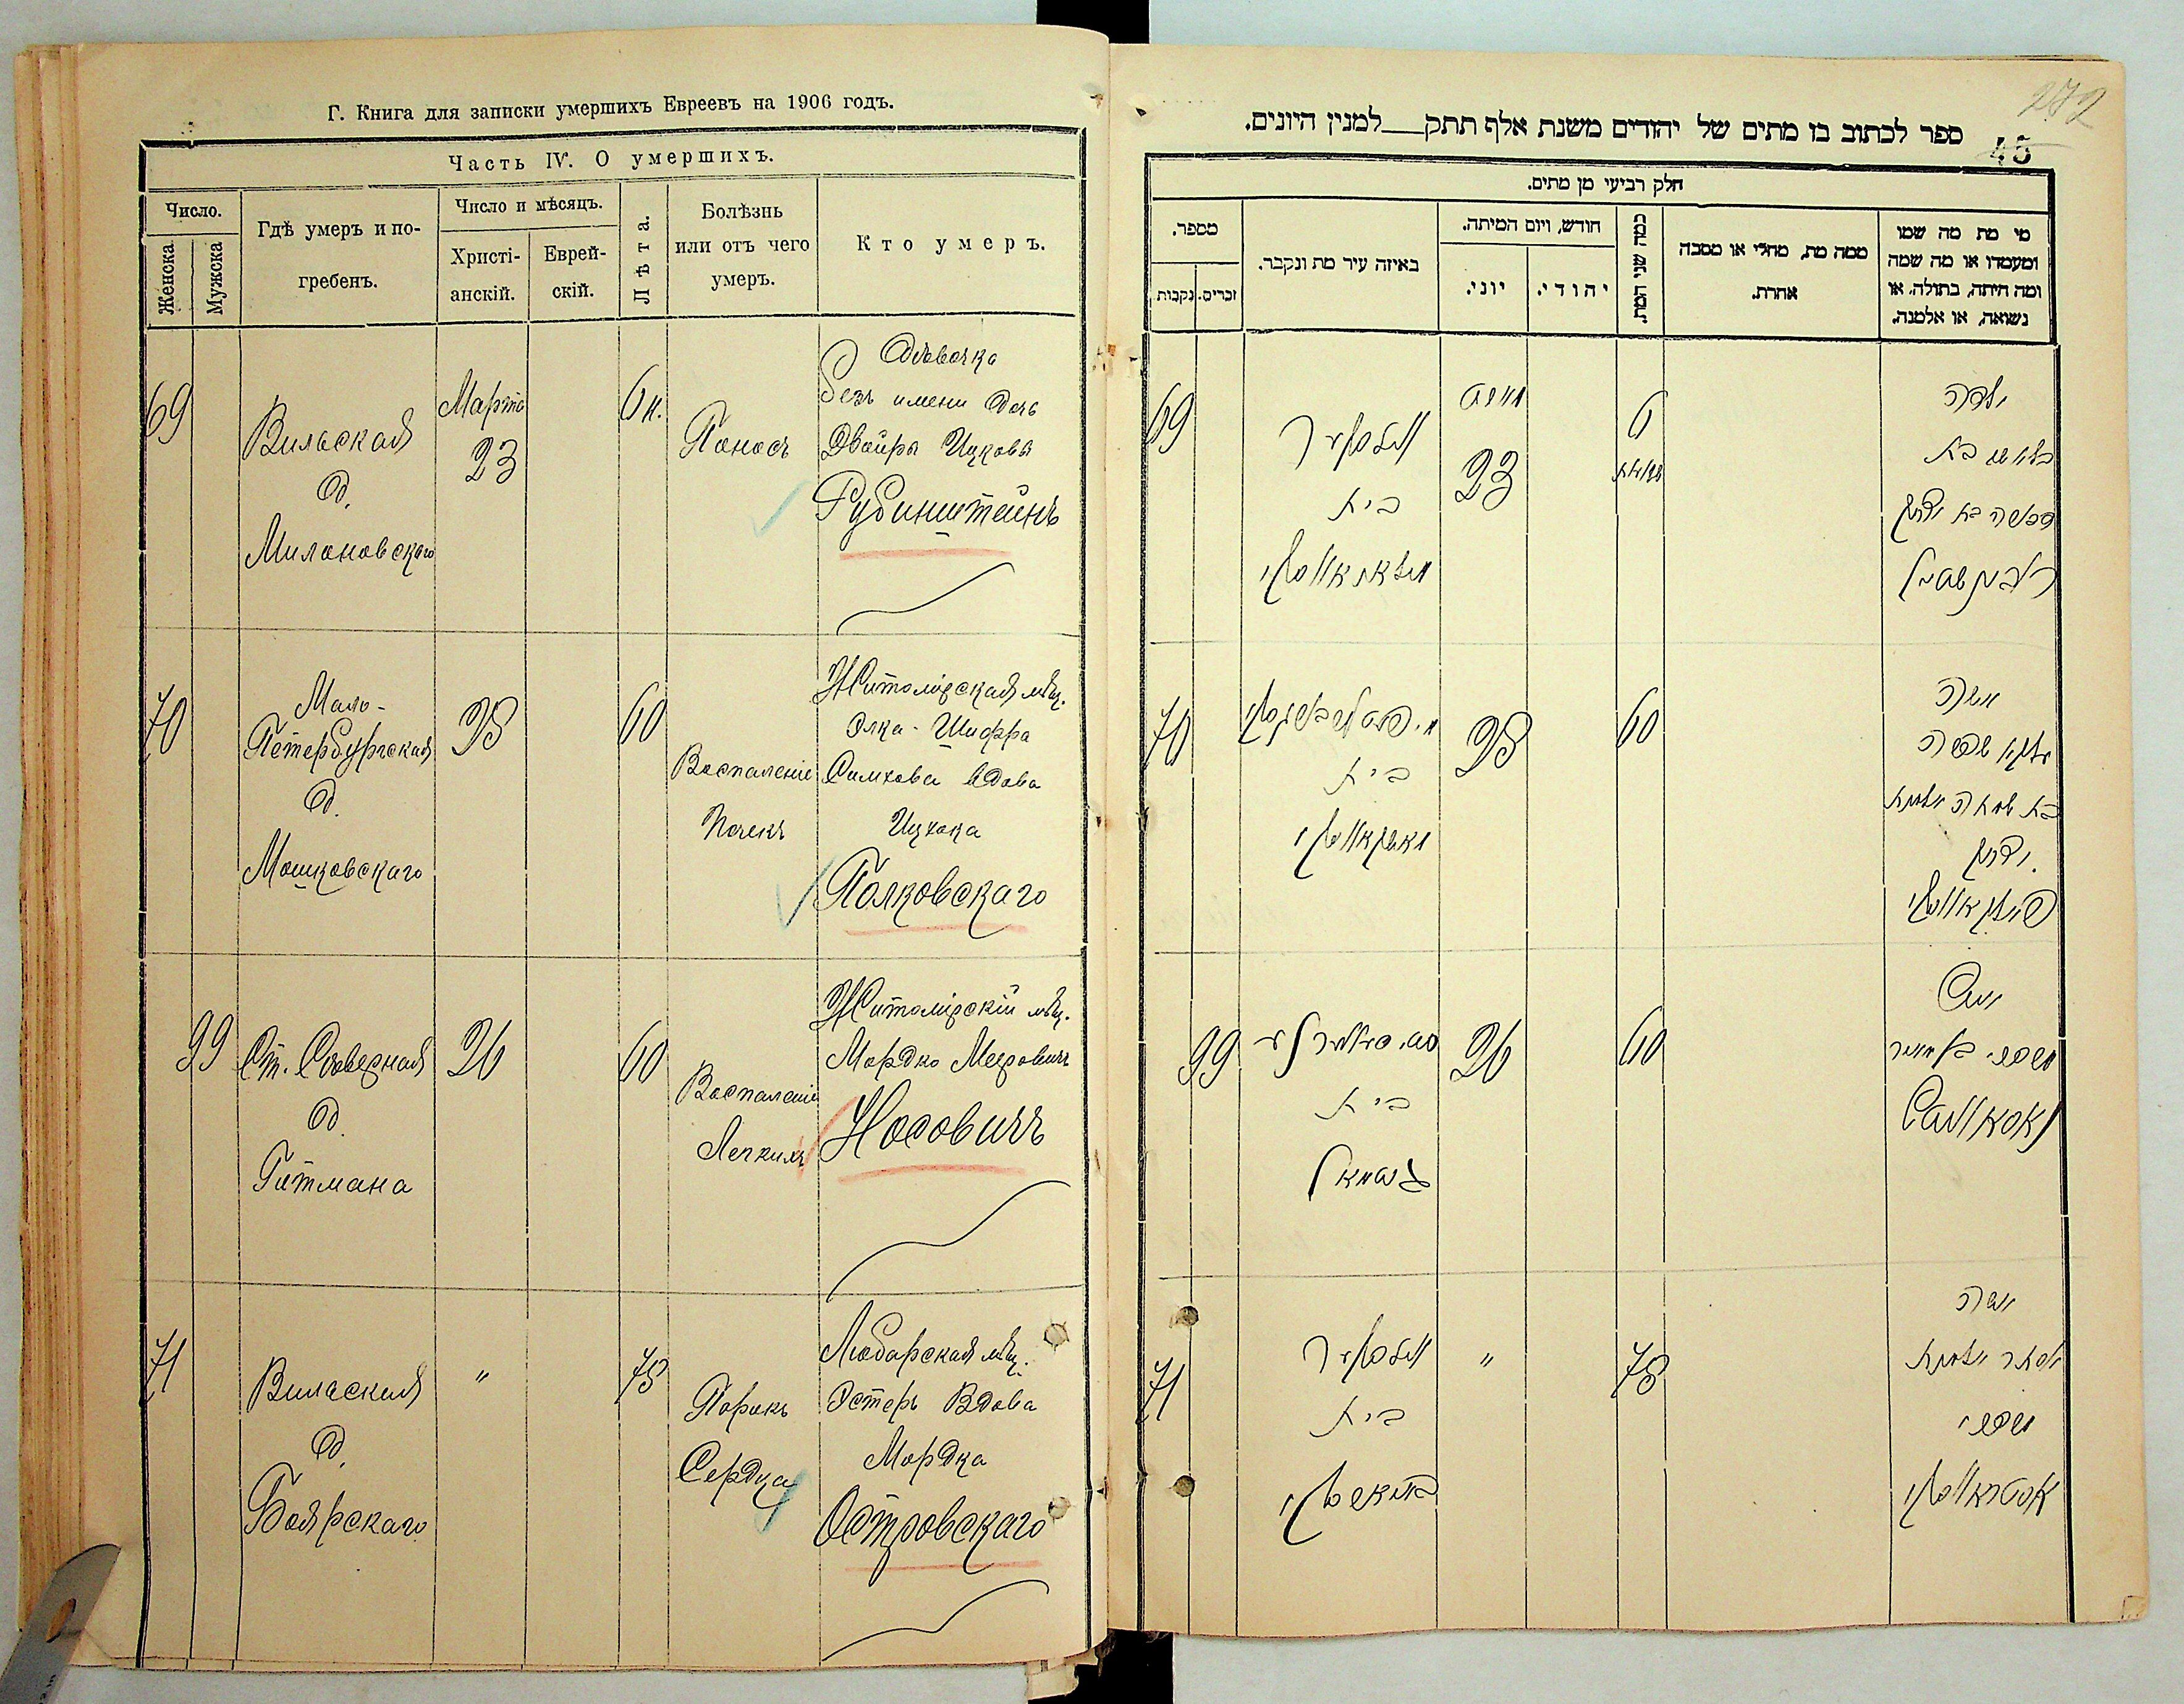 Г. Книга для записки умершихъ Евреевъ на 1906 годъ.
Часть IV. О умершихъ.
Число.
Женска
Мужска
Гдѣ умеръ и по-
гребенъ.
Число и мѣсяцъ.
Христі-
анскій.
Еврей-
скій.
Лѣта.
Болѣзнь
или отъ чего
умеръ.
Кто умеръ.
69
Вильская
д.
Милановскаго
Марта
23
6 н.
Поносъ
Дѣвочка
безъ имени дочь
Двойры Ицковы
Рубинштейнъ
70
Мало-
Петербургская
д.
Мошковскаго
25
60
Воспаленіе
почекъ
Житомірская мѣщ.
Элка-Шифра
Симхова вдова
Ицхока
Полковскаго
99
Ст. Сѣверная
д.
Гитмана
26
60
Воспаленіе
Легкихъ
Житомірскій мѣщ.
Мордко Мееровичъ
Носовичъ
71
Вильская
д.
Боярскаго
"
75
Порокъ
Сердца
Любарская мѣщ.
Эстеръ Вдова
Мордка
Островскаго
272
45
ספר לכתוב בו מתים של יהודים משנת אלף תתק למנין היונים.
חלק רביעי מן מתים.
מספר.
נקבות
זכרים.
באיזה עיר מת ונקבר.
חודש, ויום המיתה.
יוני.
יהודי.
כמה שני המת.
ממה מת, מחלי או מסבה
אחרת.
מי מת מה שמו
ומעמדו או מה שמה
ומה היתה, בתולה, או
נשואה, או אלמנה.
69
בית
מארט
23
6
ילדה
רובינשטיין
70
בית
מאשקאווסקי
25
60
אשה
פאלקאווסקי
99
בית
גיטמאן
26
60
איש
נאסאוויטש
71
בית
"
75
אשה
אסתר אלמנת
מרדכי
אסטראווסקי